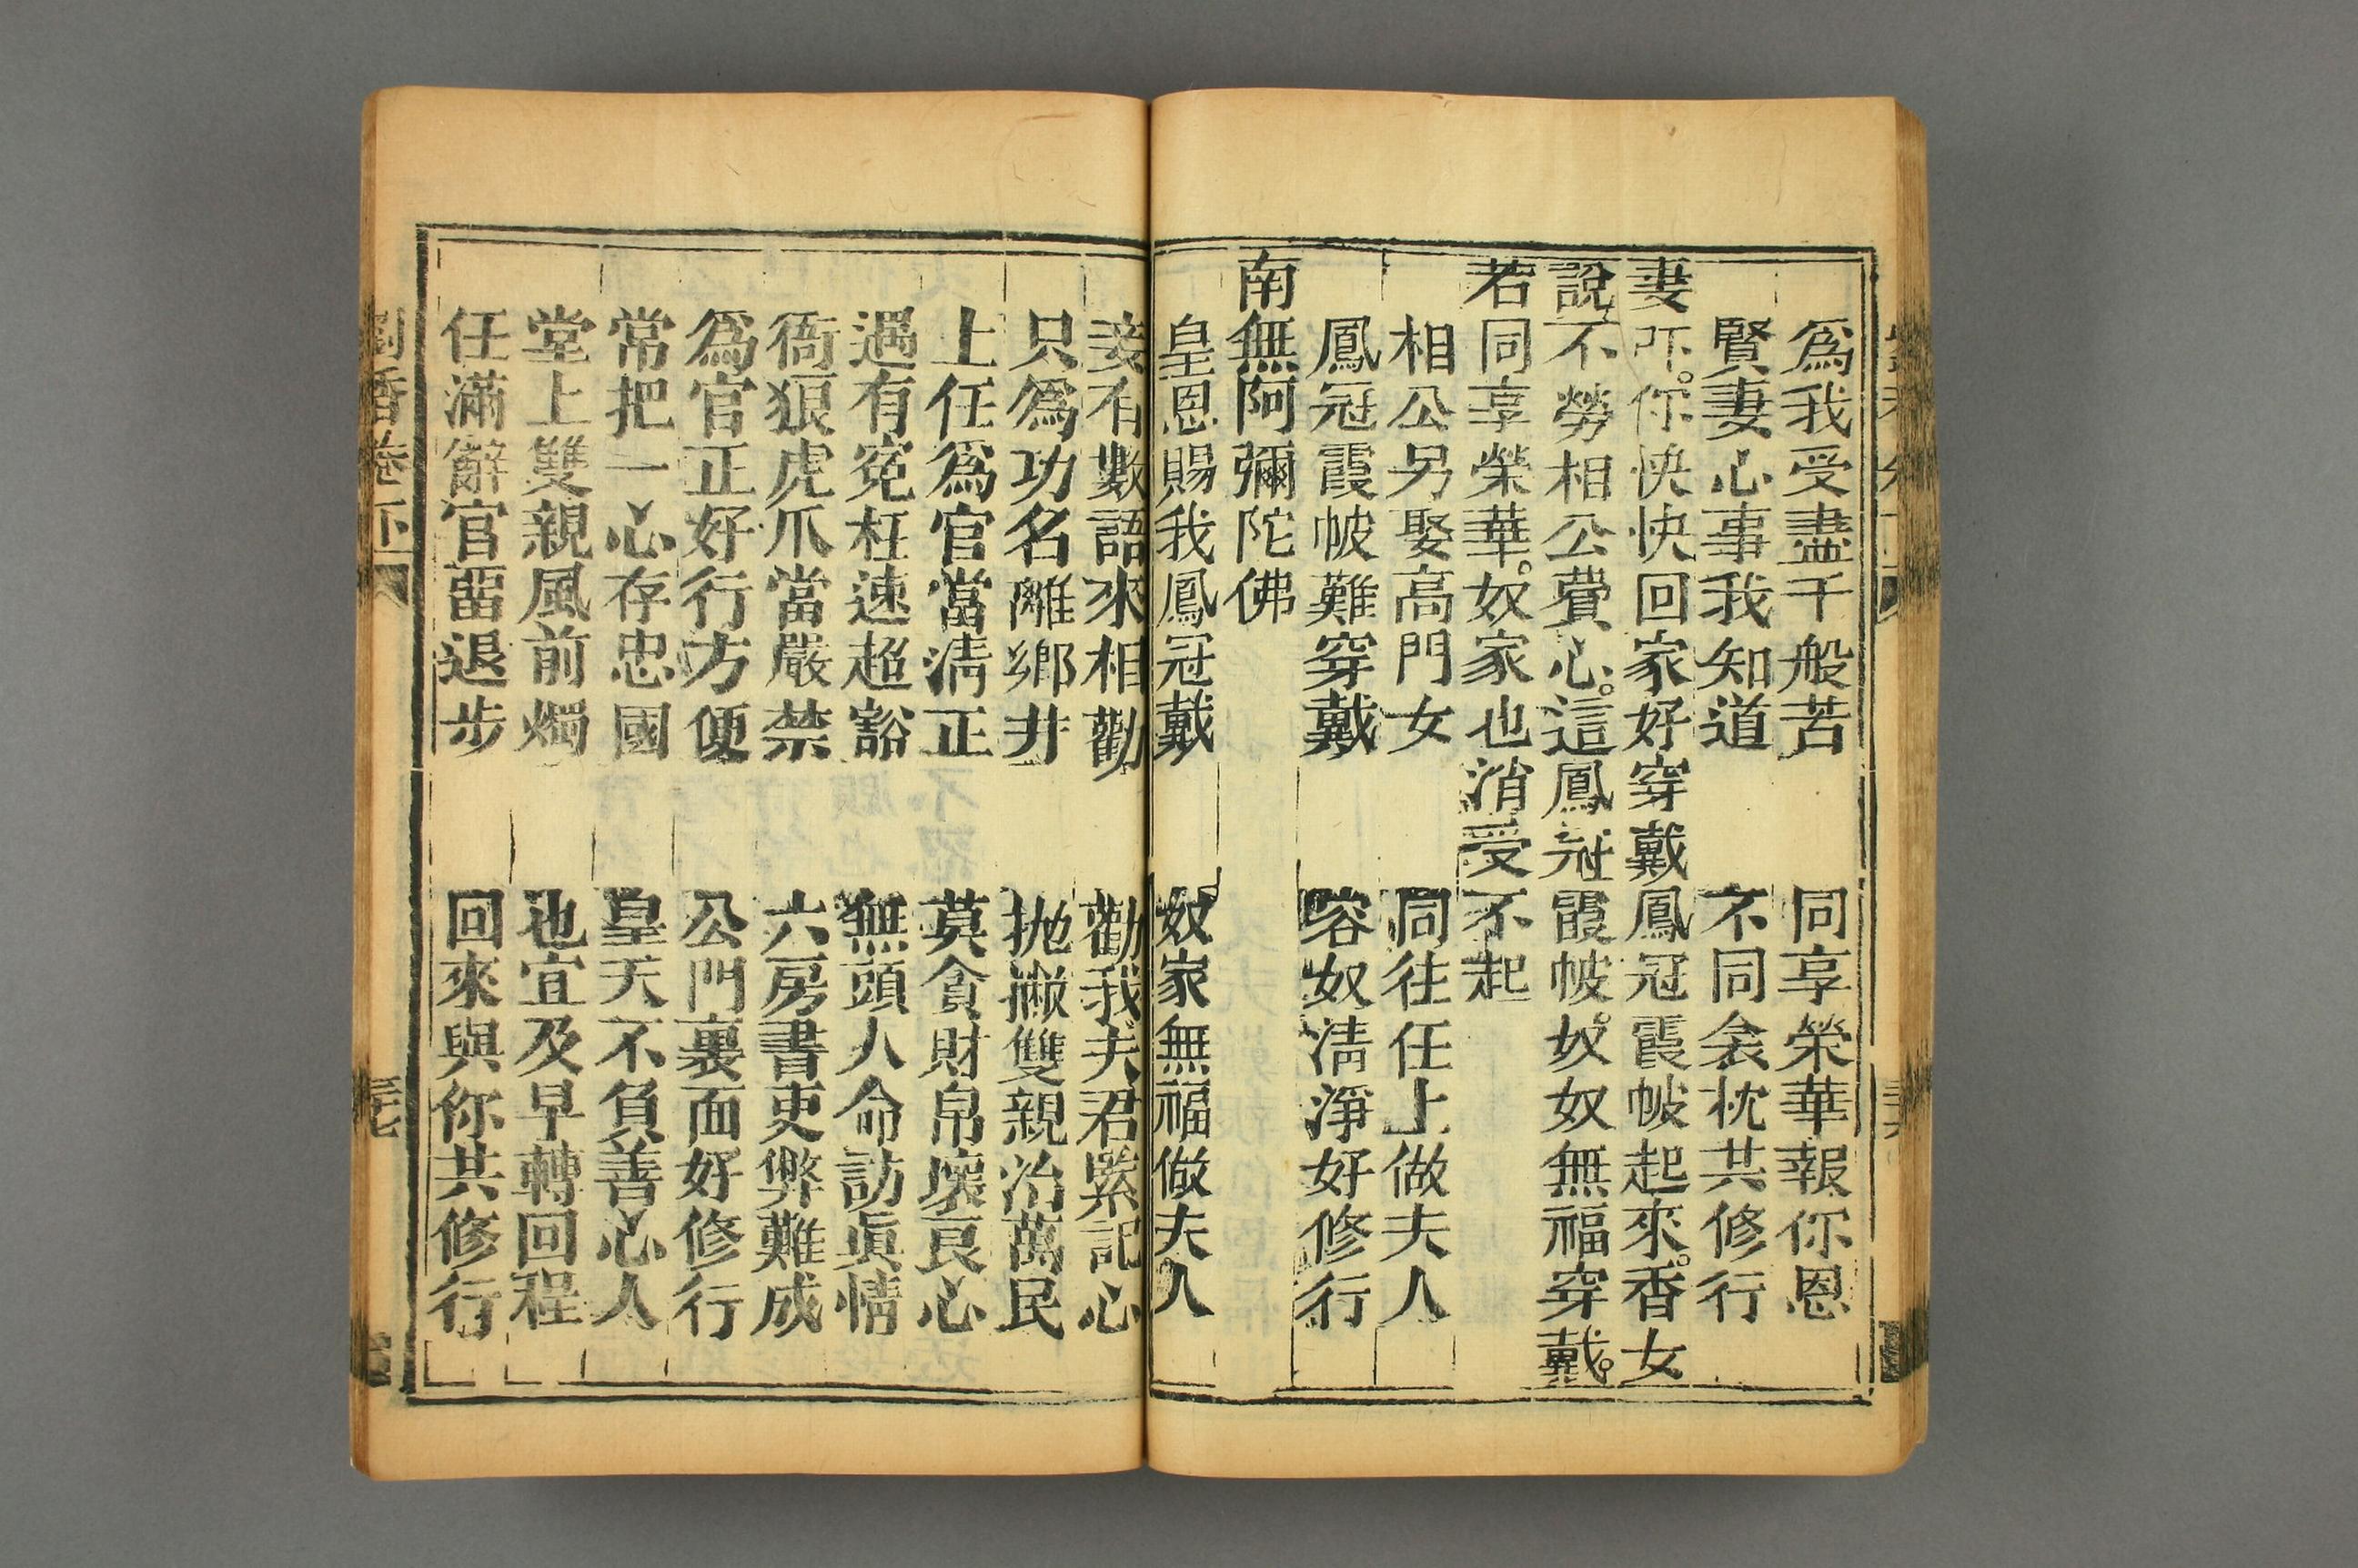 爲我受盡千般苦　同享榮華報你恩
賢妻心事我知道　不同衾枕共修行
妻吓。你快快回家好穿戴鳳冠霞帔起來。香女
說不勞相公費心。這鳳冠霞帔。奴奴無福穿戴。
若同享榮華。奴家也消受不起
相公另娶高門女　同往任上做夫人
鳳冠霞帔難穿戴　容奴清淨好修行
南無阿彌陀佛
皇恩賜我鳳冠戴　奴家無福做夫人
妾有數語來相勸　勸我夫君緊記心
只爲功名離鄉井　拋撇雙親治萬民
上任爲官當清正　莫貪財帛壞良心
遇有寃枉速超豁　無頭人命訪眞情
衙狼虎爪當嚴禁　六房書吏弊難成
爲官正好行方便　公門裏面好修行
常把一心存忠國　皇天不負善心人
堂上雙親風前燭　也宜及早轉回程
任滿辭官畱退步　回來與你共修行
香卷下
三七